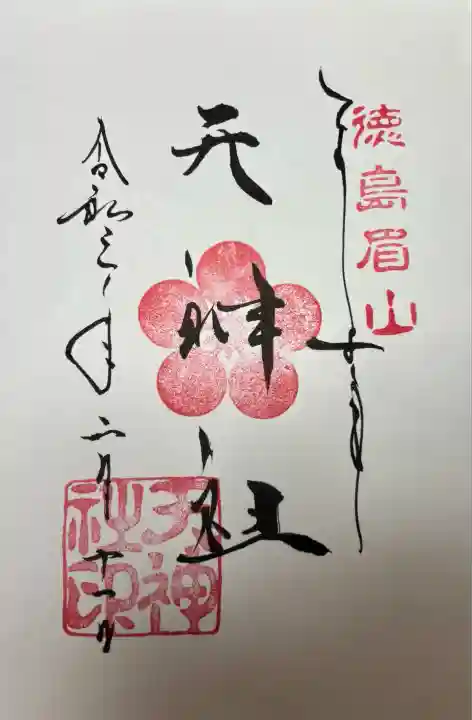 徳島眉山
天神社
令和三年二月十一日
天神社印